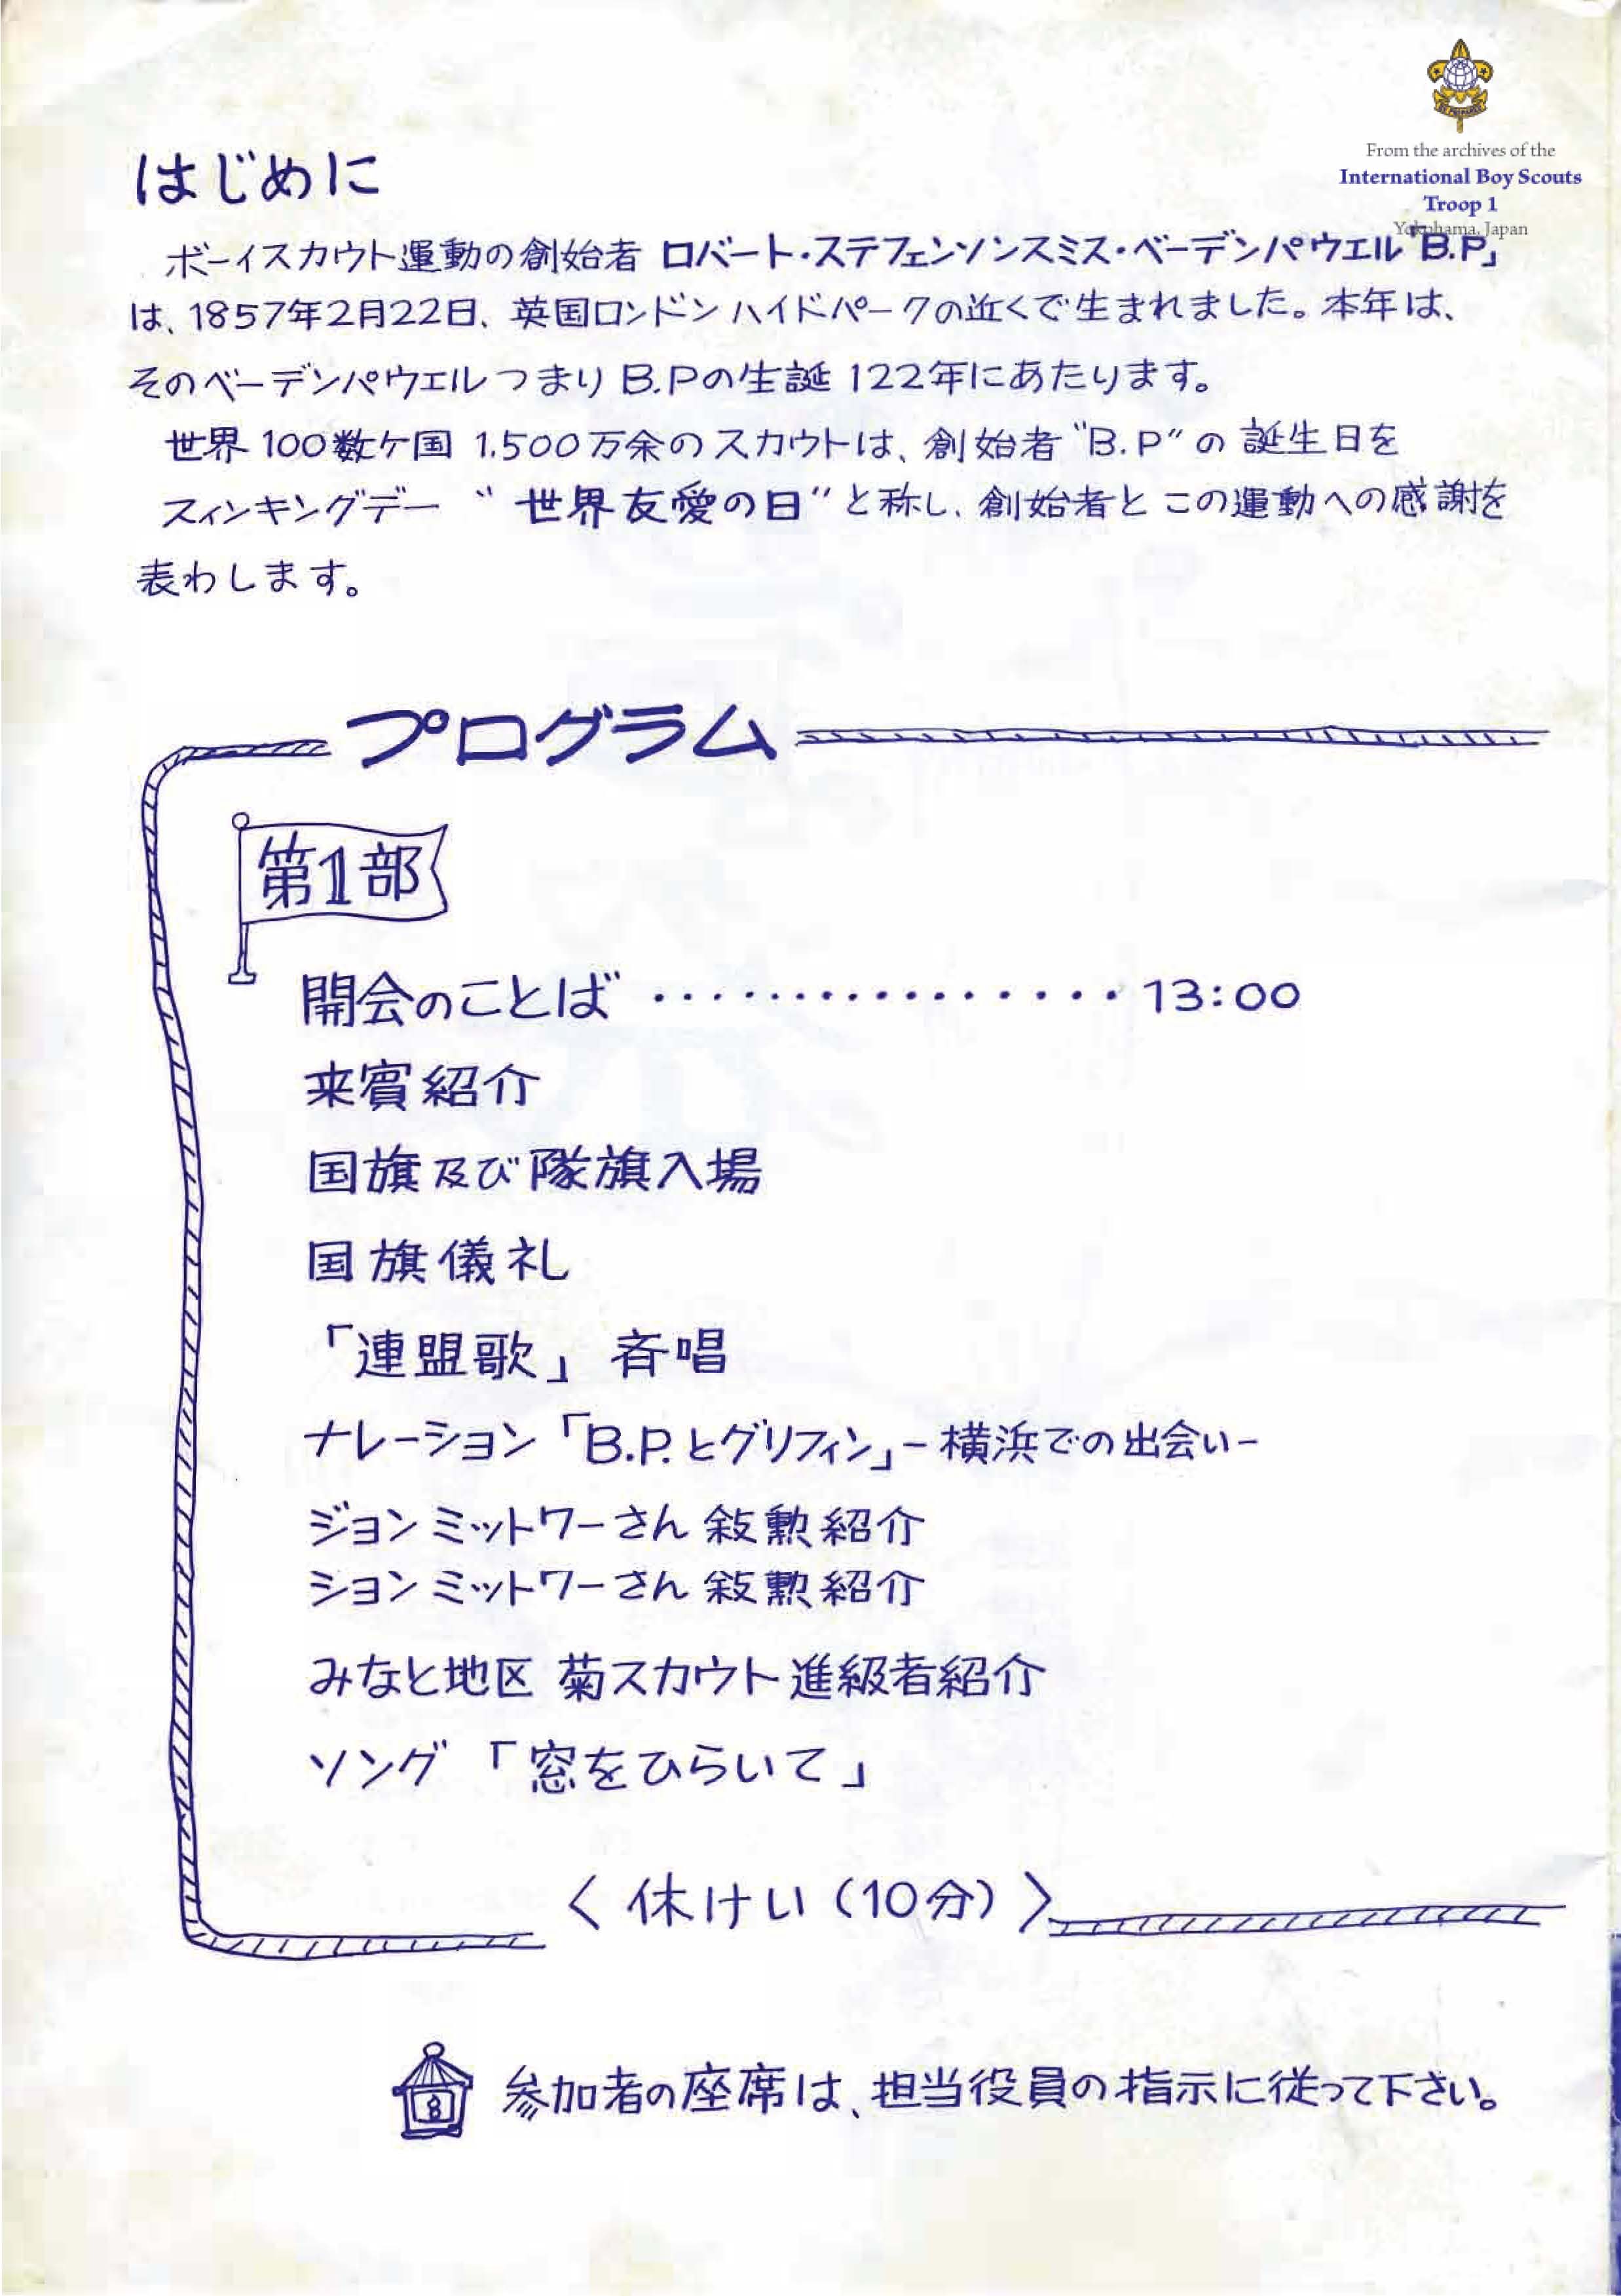 From the archives of the
International Boy Scouts
Troop 1
Yokohama, Japan
はじめに
ボーイスカウト運動の創始者 ロバート・ステフェンソンスミス・ベーデンパウエル「B.P」
は、1857年2月22日、英国ロンドン ハイドパークの近くで生まれました。本年は、
そのベーデンパウエルつまりB.Pの生誕 122年にあたります。
世界 100数ケ国 1.500万余のスカウトは、創始者"B.P"の 誕生日を
スィンキングデー "世界友愛の日"と称し、創始者と この運動への感謝を
表わします。
プログラム
第1部
開会のことば ・・・・・・・・・・・・・・・・・ 13:00
来賓紹介
国旗及び隊旗入場
国旗儀礼
「連盟歌」斉唱
ナレーション「B.P.とグリフィン」-横浜での出会い-
ジョン ミットワーさん 敍勲紹介
ション ミットワーさん 敍勲紹介
みなと地区 菊スカウト進級者紹介
ソング 「窓をひらいて」
〈 休けい(10分) 〉
8 参加者の座席は、担当役員の指示に従って下さい。